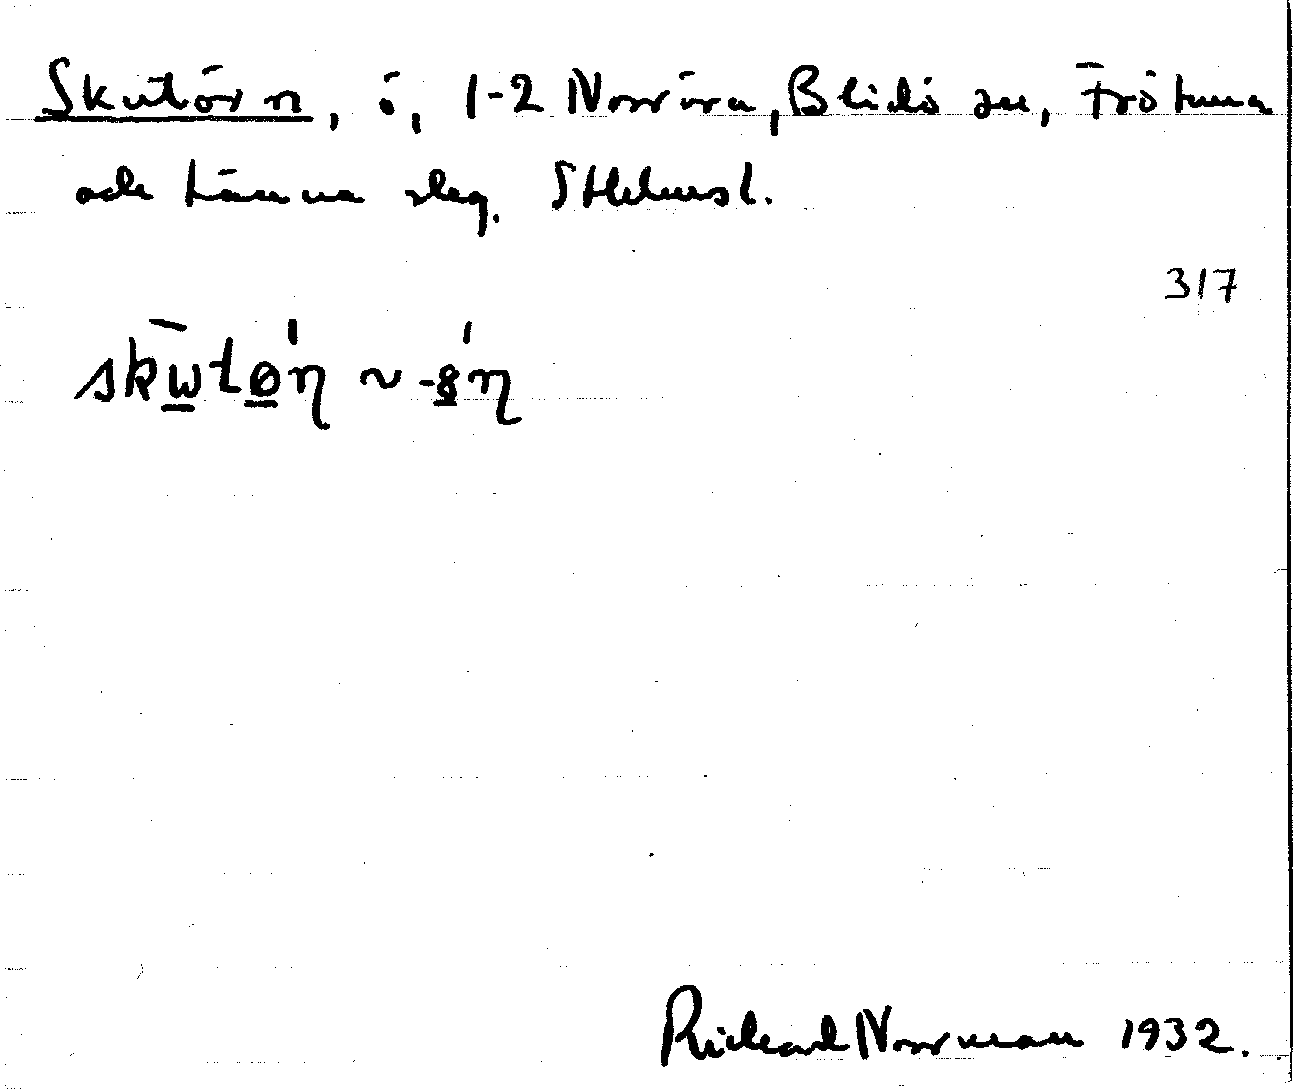 Skutörn, ö, 1-2 Norröra, Blidö sn, Frötuna
och Länna slag. Sthlmsl.
317
skɯtøꞌn ~ -8ꞌn
Rickard Norrman 1932.